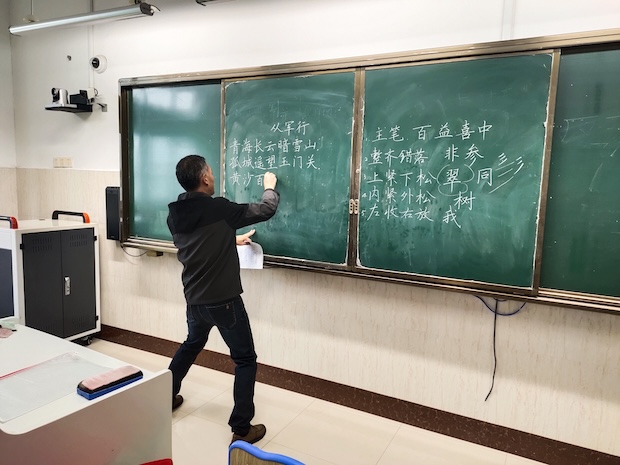 从军行
青海长云暗雪山,
孤城遥望玉门关,
黄沙百
主笔 百益喜中
整齐错落 非参
上紧下松 翠同
内紧外松 树
左收右放 我